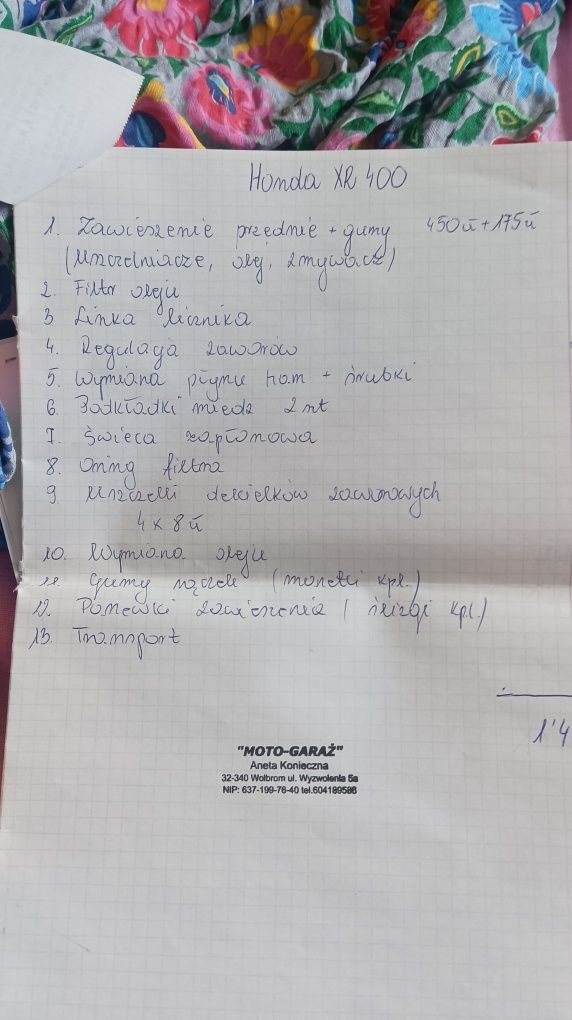 Honda XR 400
1. Zawieszenie przednie + gumy 450zł + 175zł
(uszczelniacze, olej, zmywacz)
2. Filtr oleju
3 Linka licznika
4. Regulacja zaworów
5. Wymiana płynu ham + śrubki
6. Podkładki miedź 2 szt
7. Świeca zapłonowa
8. Oring filtra
9 Uszczelki dekielków zaworowych
4 x 8 zł
10. Wymiana oleju
11. Gumy rączek (manetki kpl.)
12. Panewki zawieszenia ( ślizgi kpl.)
13. Transport
1'4
"MOTO-GARAŻ"
Aneta Konieczna
32-340 Wolbrom ul. Wyzwolenia 5a
NIP: 637-199-76-40 tel.604189586